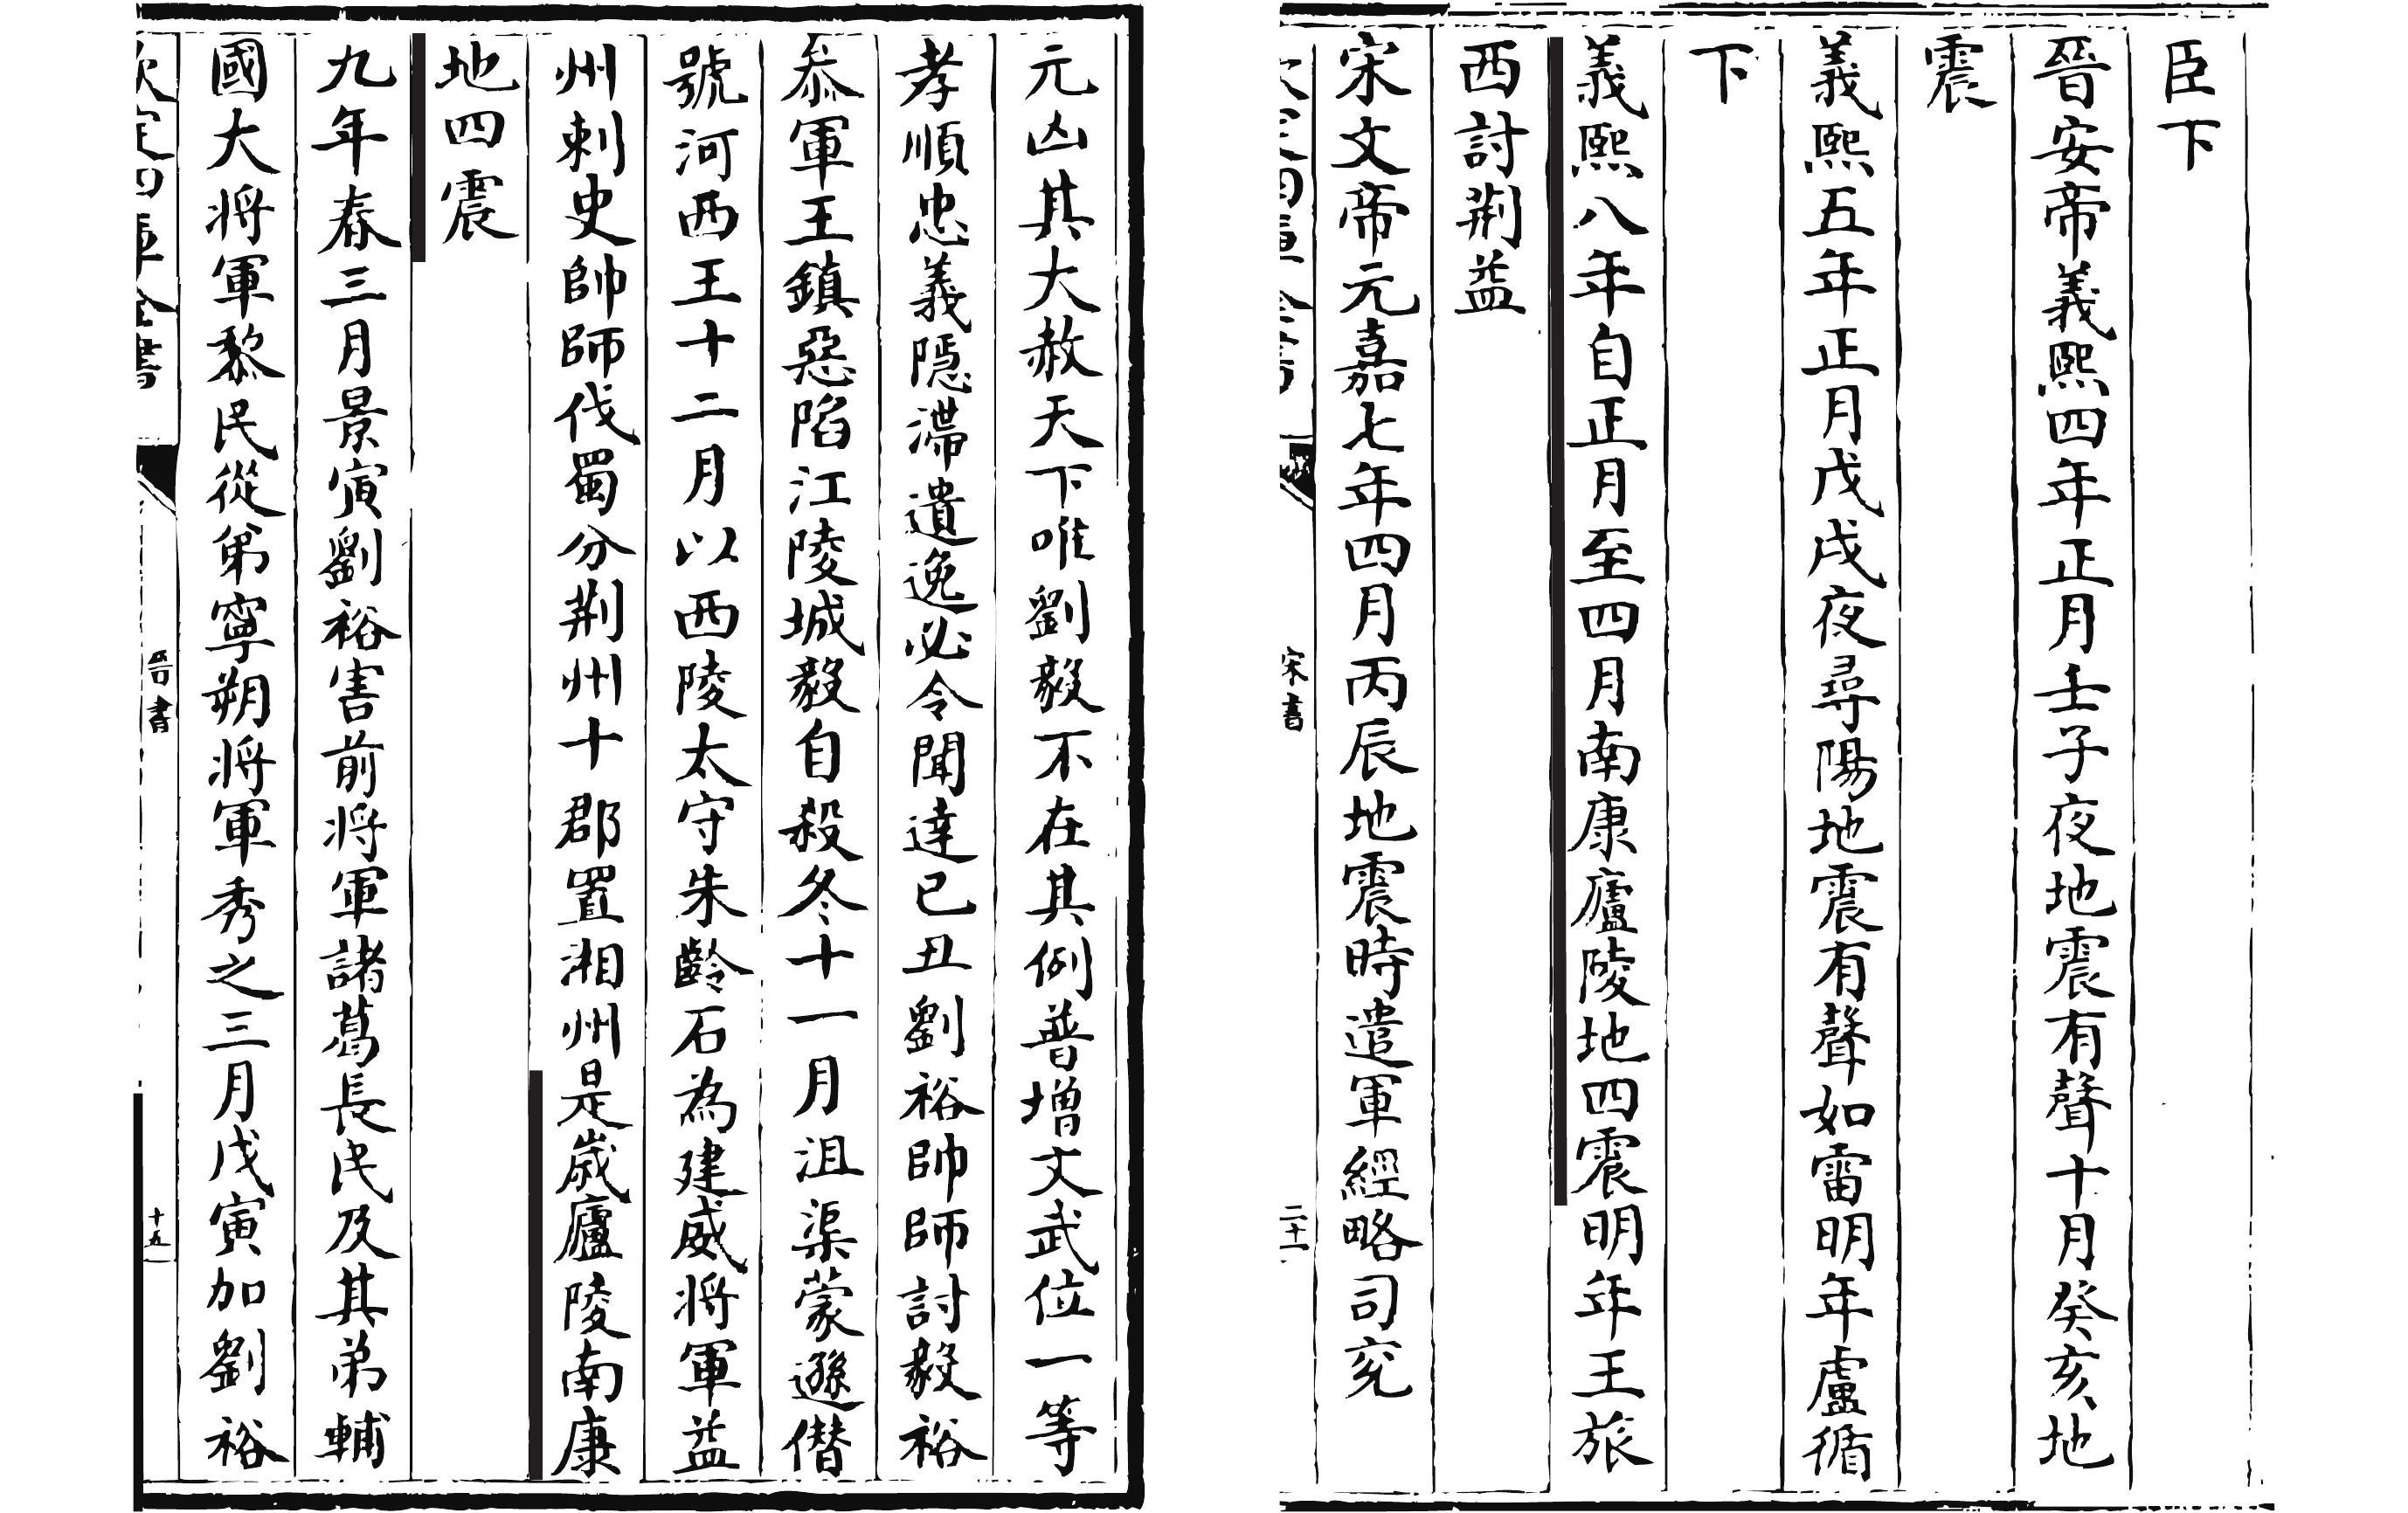 臣下
晉安帝義熙四年正月壬子夜地震有聲十月癸亥地
震
義熙五年正月戊戌夜尋陽地震有聲如雷明年盧循
下
義熙八年自正月至四月南康廬陵地四震明年王旅
西討荆益
宋文帝元嘉七年四月丙辰地震時遣軍經略司兖
宋書
二十一
元凶其大赦天下唯劉毅不在其例普增文武位一等
孝順忠義隱滯遺逸必令聞達已丑劉裕帥師討毅裕
叅軍王鎮惡陷江陵城毅自殺冬十一月沮渠蒙遜僣
號河西王十二月以西陵太守朱齡石為建威將軍益
州刺史帥師伐蜀分荆州十郡置湘州是歲廬陵南康
地四震
九年春三月景寅劉裕害前將軍諸葛長民及其弟輔
國大將軍黎民從弟寧朔將軍秀之三月戊寅加劉裕
欽定四庫全書
晉書
十五